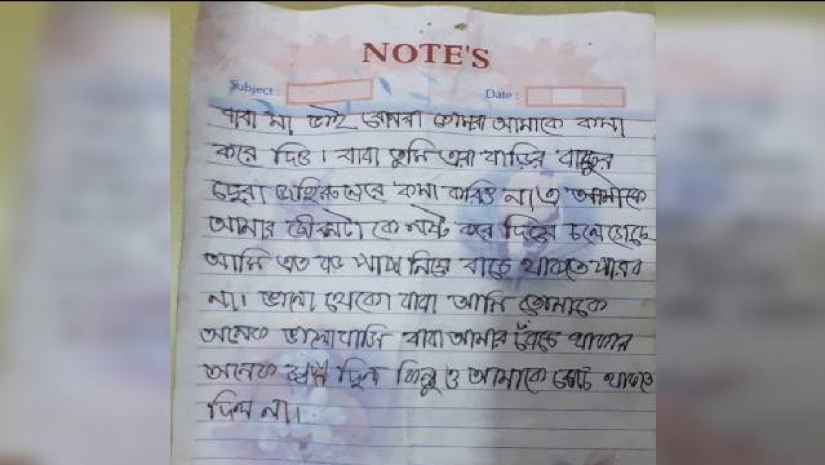 NOTE'S
Subject :
Date :
বাবা মা ভাই বোনরা তোমরা আমাকে ক্ষমা
করে দিও। বাবা তুমি এরা বাড়ির
ক্ষমা করিও না এ আমাকে
আমার জীবনটা কে নষ্ট করে দিয়ে চলে গেছে
আমি এত বড় পাপ নিয়ে বাচে থাকতে পারব
না। ভালো থেকো বাবা আমি তোমাকে
অনেক ভালোবাসি বাবা আমার বেঁচে থাকার
অনেক স্বপ্ন ছিল কিন্তু ও আমাকে বেচে থাকতে
দিল না।